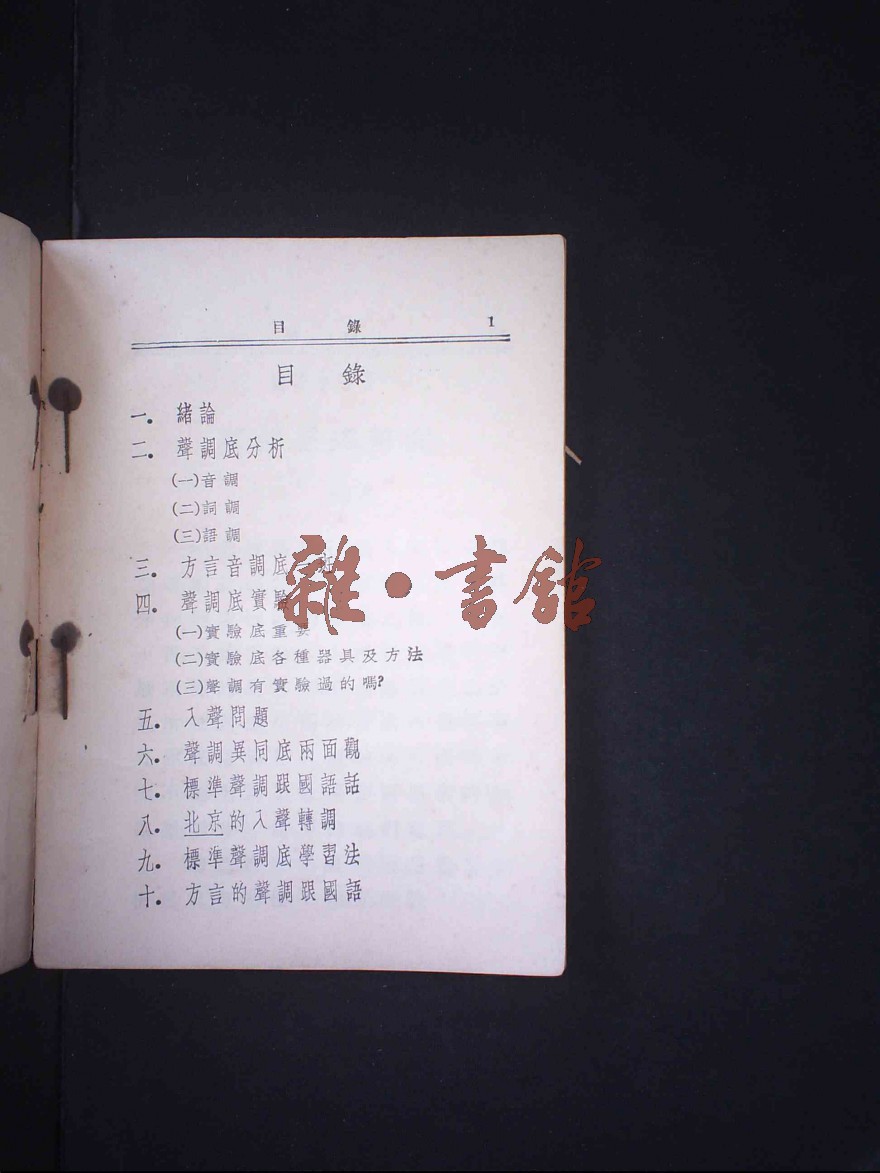 目 錄 1
目 錄
一. 緒論
二. 聲調底分析
(一)音調
(二)詞調
(三)語調
三. 方言音調底一斑
四. 聲調底實驗
(一)實驗底重要
(二)實驗底各種器具及方法
(三)聲調有實驗過的嗎?
五. 入聲問題
六. 聲調異同底兩面觀
七. 標準聲調跟國語話
八. 北京的入聲轉調
九. 標準聲調底學習法
十. 方言的聲調跟國語
雜·書館